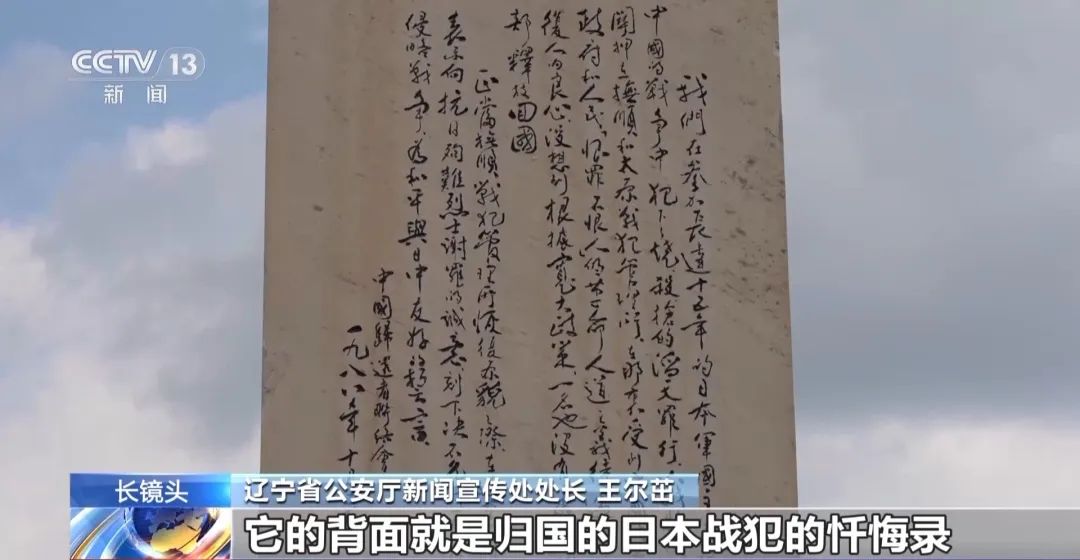 CCTV 13
新闻
我們在參加長達十五年的日本軍國主
中國的戰爭中犯下了燒殺搶的滔天罪行
關押在撫順和太原戰犯管理所在那裏受到
政府和人民恨罪不恨人的革命人道主義
復人的良心沒想到根據寬大政策一名也沒有
都釋放回國
正當撫順戰犯管理所恢復原貌之際在
表示向抗日殉難烈士謝罪的誠意刻下决不允
侵略戰爭為和平與日中友好的誓言
中國歸還者聯絡會
一九八八年十
长镜头
辽宁省公安厅新闻宣传处处长 王尔茁
它的背面就是归国的日本战犯的忏悔录